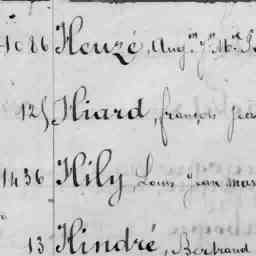 1086 Heuzé, Aug.in J.n M.ie
125 Hiard, françois Jea
1436 Hily, Louis Jean mar
13 Hindré, Bertrand